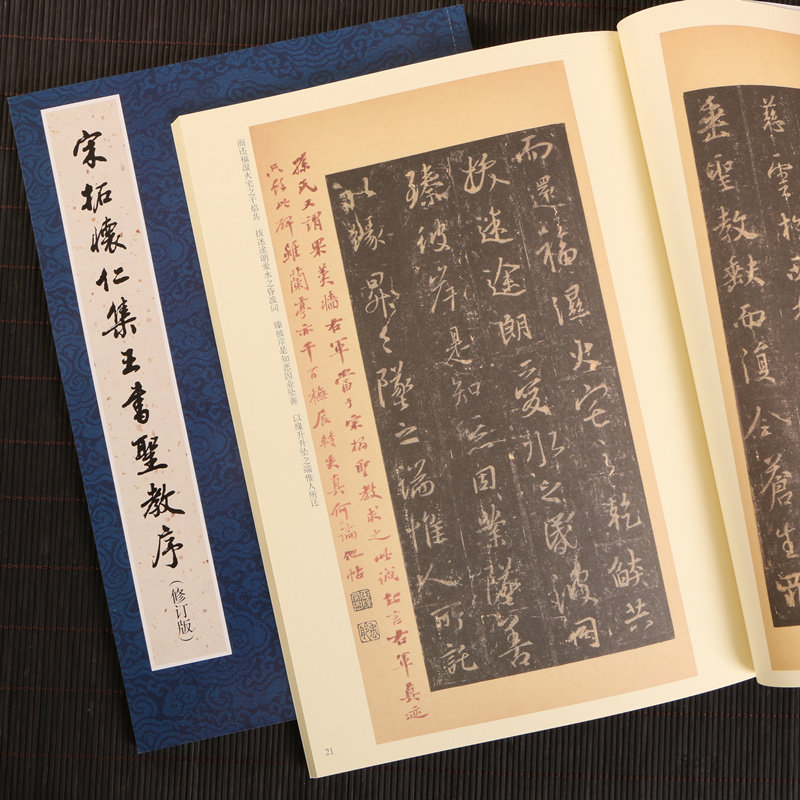 宋拓懷仁集王書聖教序
(修订版)
慈雲
垂聖教缺而復全蒼生罪
而還福濕火宅之乾燄共
拔迷途朗愛水之昏波同
臻彼岸是知惡因業墜善
以緣昇昇墜之端惟人所託
孫氏又謂果羹牆右軍當于宋搨聖教求之此誠知言右軍真迹
只餘此碑雖蘭亭亦千百橅展轉失真何論他帖
而还福湿火宅之干焰共 拔迷途朗爱水之昏波同 臻彼岸是知恶因业坠善 以缘升升坠之端惟人所讬
21